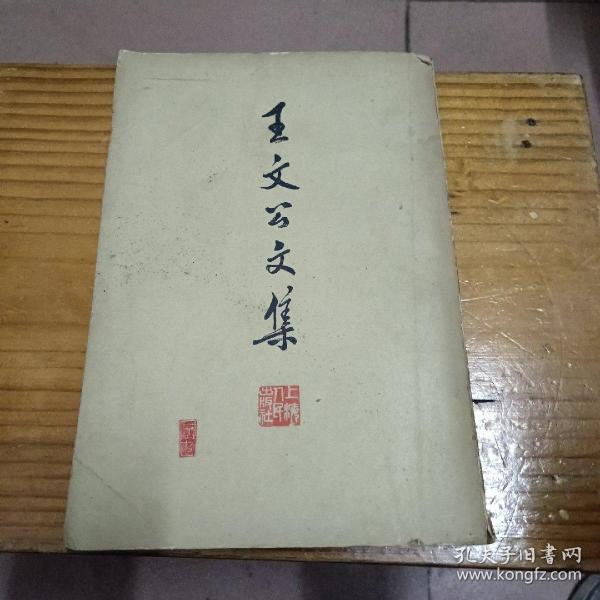 王文公文集
上海人民出版社
孔夫子旧书网
www.kongfz.com